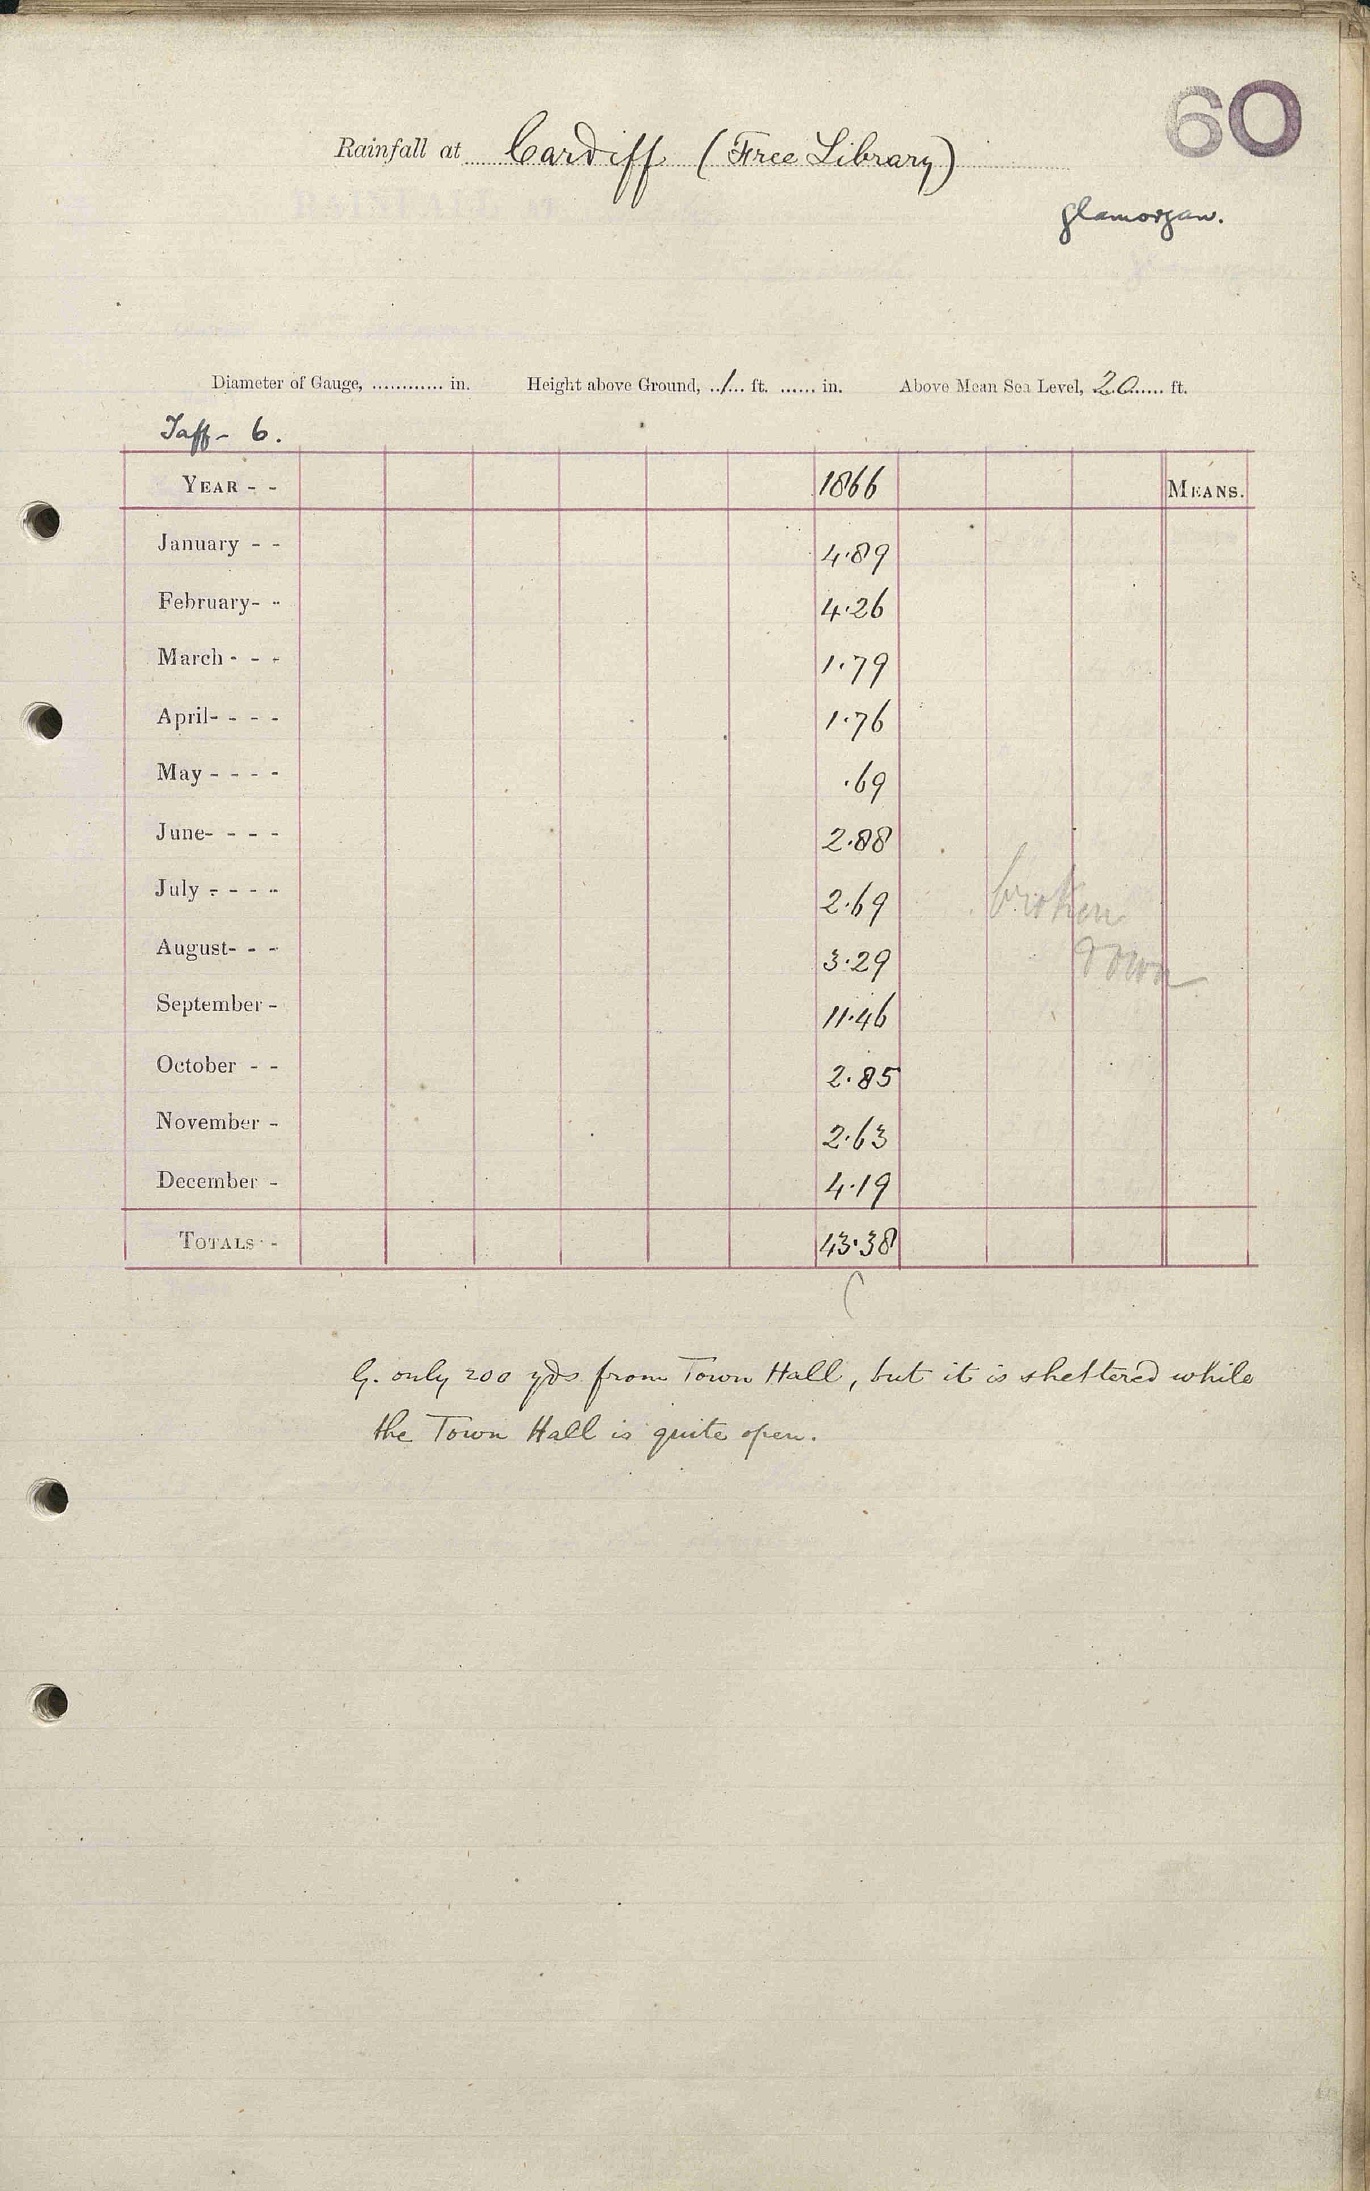 60
Rainfall at Cardiff (Free Library)
Glamorgan.
Diameter of Gauge, ............ in. Height above Ground, ..1... ft. ...... in. Above Mean Sea Level, .20...... ft.
Taff - 6.
YEAR - - 1866 MEANS.
January - - 4.89
February- - 4.26
March - - - 1.79
April- - - - 1.76
May - - - - .69
June- - - - 2.88
July - - - - 2.69
August- - - 3.29
September - 11.46
October - - 2.85
November - 2.63
December - 4.19
TOTALS - 43.38
broken
down
G. only 200 yds from Town Hall, but it is sheltered while
the Town Hall is quite open.